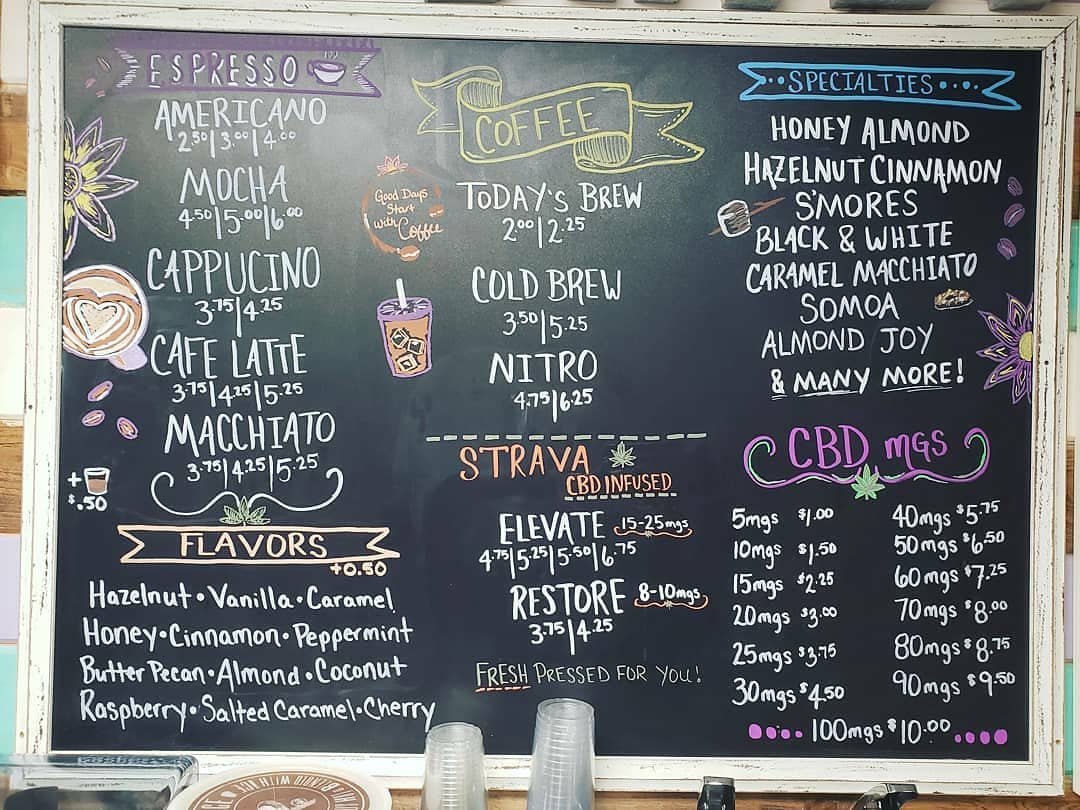 ESPRESSO
AMERICANO
2.50|3.00|4.00
MOCHA
4.50|5.00|6.00
CAPPUCINO
3.75|4.25
CAFE LATTE
3.75|4.25|5.25
MACCHIATO
3.75|4.25|5.25
+
$.50
FLAVORS
+0.50
Hazelnut • Vanilla • Caramel
Honey • Cinnamon • Peppermint
Butter Pecan • Almond • Coconut
Raspberry • Salted Caramel • Cherry
COFFEE
Good Days
Start
with Coffee
TODAY'S BREW
2.00|2.25
COLD BREW
3.50|5.25
NITRO
4.75|6.25
STRAVA
CBD INFUSED
ELEVATE 15-25mgs
4.75|5.25|5.50|6.75
RESTORE 8-10mgs
3.75|4.25
FRESH PRESSED FOR YOU!
SPECIALTIES
HONEY ALMOND
HAZELNUT CINNAMON
S'MORES
BLACK & WHITE
CARAMEL MACCHIATO
SOMOA
ALMOND JOY
& MANY MORE!
CBD MGS
5mgs $1.00
10mgs $1.50
15mgs $2.25
20mgs $3.00
25mgs $3.75
30mgs $4.50
40mgs $5.75
50mgs $6.50
60mgs $7.25
70mgs $8.00
80mgs $8.75
90mgs $9.50
100mgs $10.00